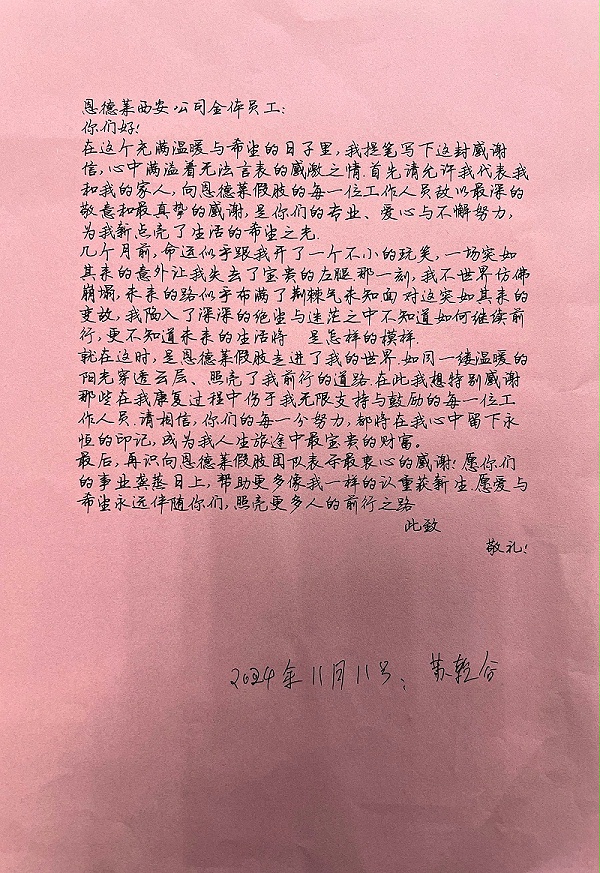 恩德莱西安公司全体员工:
你们好!
在这个充满温暖与希望的日子里,我提笔写下这封感谢
信,心中满溢着无法言表的感激之情.首先请允许我代表我
和我的家人,向恩德莱假肢的每一位工作人员致以最深的
敬意和最真挚的感谢,是你们的专业、爱心与不懈努力,
为我新点亮了生活的希望之光.
几个月前,命运似乎跟我开了一个不小的玩笑,一场突如
其来的意外让我失去了宝贵的左腿那一刻,我不世界仿佛
崩塌,未来的路似乎布满了荆棘气未知面对这突如其来的
变故,我陷入了深深的绝望与迷茫之中不知道如何继续前
行,更不知道未来的生活将 是怎样的模样.
就在这时,是恩德莱假肢走进了我的世界.如同一缕温暖的
阳光穿透云层、照亮了我前行的道路.在此我想特别感谢
那些在我康复过程中伤于我无限支持与鼓励的每一位工
作人员.请相信,你们的每一分努力,都将在我心中留下永
恒的印记,成为我人生旅途中最宝贵的财富。
最后,再识向恩德莱假肢团队表示最衷心的感谢!愿你们
的事业龚蒸日上,帮助更多像我一样的认重获新生.愿爱与
希望永远伴随你们,照亮更多人的前行之路
此致
敬礼!
2024年11月11号:苏乾合